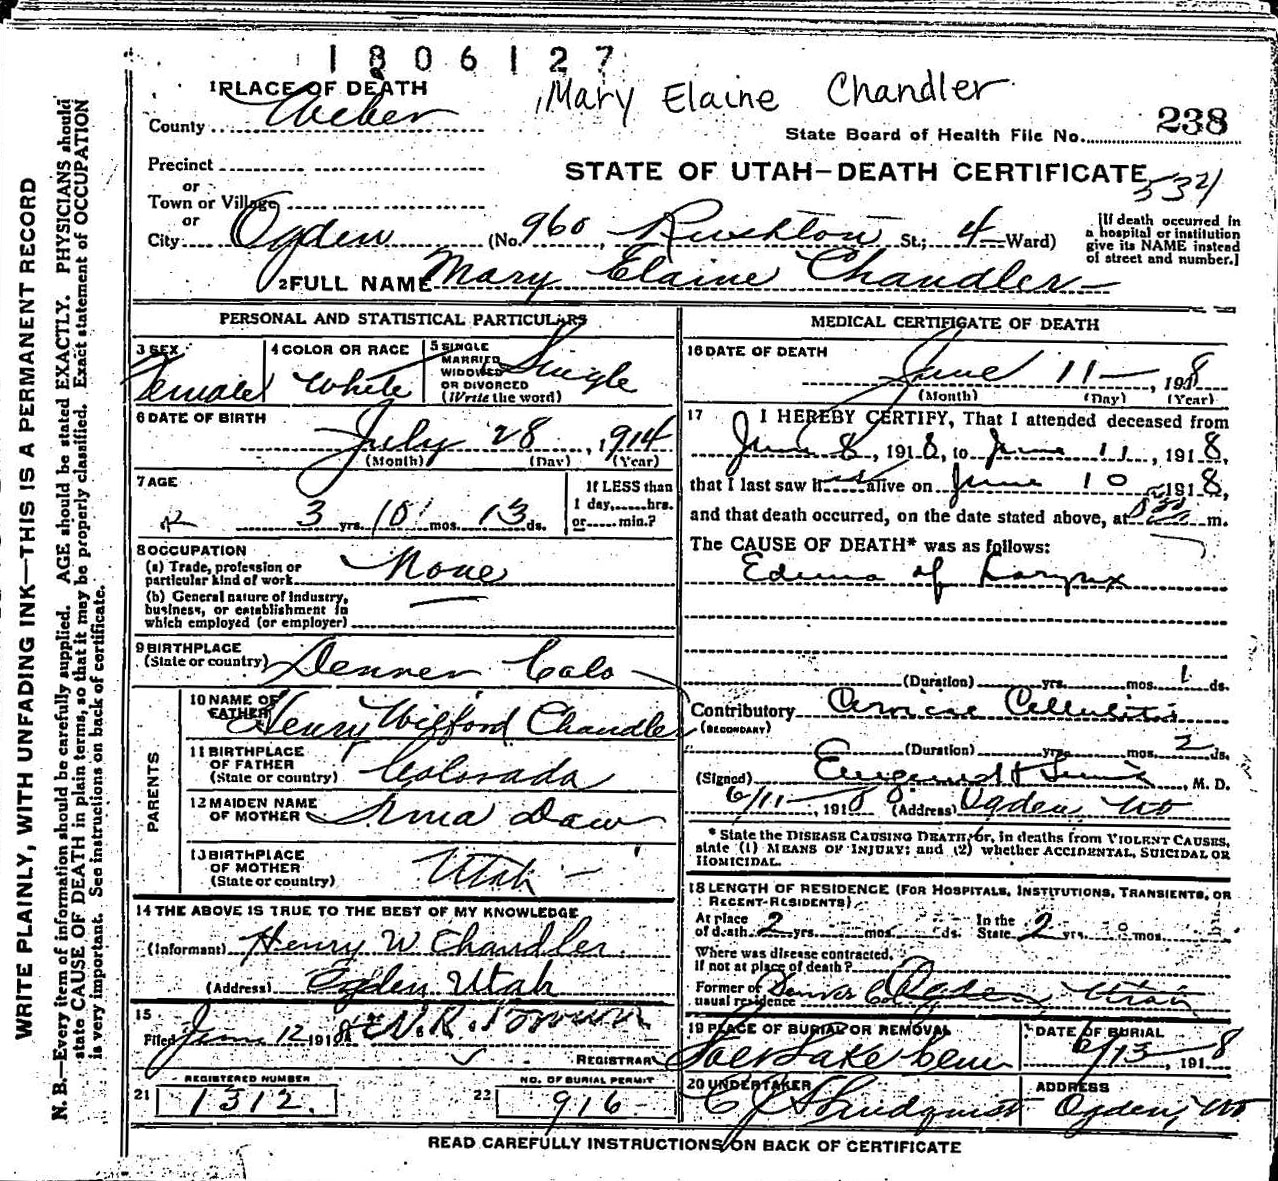 1806127
1 PLACE OF DEATH
Mary Elaine Chandler
County Weber
State Board of Health File No. 238
Precinct
STATE OF UTAH—DEATH CERTIFICATE
534
or
Town or Village
or
City Ogden (No. 960 Rushton St.; 4 Ward)
[If death occurred in
a hospital or institution
give its NAME instead
of street and number.]
2 FULL NAME Mary Elaine Chandler
WRITE PLAINLY, WITH UNFADING INK—THIS IS A PERMANENT RECORD
N. B.—Every item of information should be carefully supplied. AGE should be stated EXACTLY. PHYSICIANS should
state CAUSE OF DEATH in plain terms, so that it may be properly classified. Exact statement of OCCUPATION
is very important. See instructions on back of certificate.
PERSONAL AND STATISTICAL PARTICULARS
3 SEX
Female
4 COLOR OR RACE
White
5 SINGLE
MARRIED
WIDOWED
OR DIVORCED
(Write the word)
Single
6 DATE OF BIRTH
July 28, 1914
(Month) (Day) (Year)
7 AGE
3 yrs. 10 mos. 13 ds.
If LESS than
1 day,......hrs.
or......min.?
8 OCCUPATION
(a) Trade, profession or
particular kind of work None
(b) General nature of industry,
business, or establishment in
which employed (or employer)
9 BIRTHPLACE
(State or country) Denver Colo
PARENTS
10 NAME OF
FATHER Henry Wilford Chandler
11 BIRTHPLACE
OF FATHER
(State or country) Colorado
12 MAIDEN NAME
OF MOTHER Irma Daw
13 BIRTHPLACE
OF MOTHER
(State or country) Utah
14 THE ABOVE IS TRUE TO THE BEST OF MY KNOWLEDGE
(Informant) Henry W Chandler
(Address) Ogden Utah
15
Filed June 12 1918
REGISTRAR
REGISTERED NUMBER
21 1312
NO. OF BURIAL PERMIT
22 916
MEDICAL CERTIFICATE OF DEATH
16 DATE OF DEATH
June 11, 1918
(Month) (Day) (Year)
17 I HEREBY CERTIFY, That I attended deceased from
June 8, 1918, to June 11, 1918,
that I last saw h alive on June 10 1918,
and that death occurred, on the date stated above, at m.
The CAUSE OF DEATH* was as follows:
Edema of Larynx
(Duration) yrs. mos. 1 ds.
Contributory Cellulitis
(SECONDARY)
(Duration) yrs. mos. 2 ds.
(Signed) M. D.
6/11, 1918 (Address) Ogden
* State the DISEASE CAUSING DEATH, or, in deaths from VIOLENT CAUSES,
state (1) MEANS OF INJURY; and (2) whether ACCIDENTAL, SUICIDAL OR
HOMICIDAL.
18 LENGTH OF RESIDENCE (FOR HOSPITALS, INSTITUTIONS, TRANSIENTS, OR
RECENT RESIDENTS)
At place
of death 2 yrs. mos. ds. In the
State 2 yrs. mos.
Where was disease contracted,
if not at place of death?
Former or
usual residence Denver Ogden Utah
19 PLACE OF BURIAL OR REMOVAL
Salt Lake Cem
DATE OF BURIAL
6/13, 1918
20 UNDERTAKER
ADDRESS
Ogden,
READ CAREFULLY INSTRUCTIONS ON BACK OF CERTIFICATE